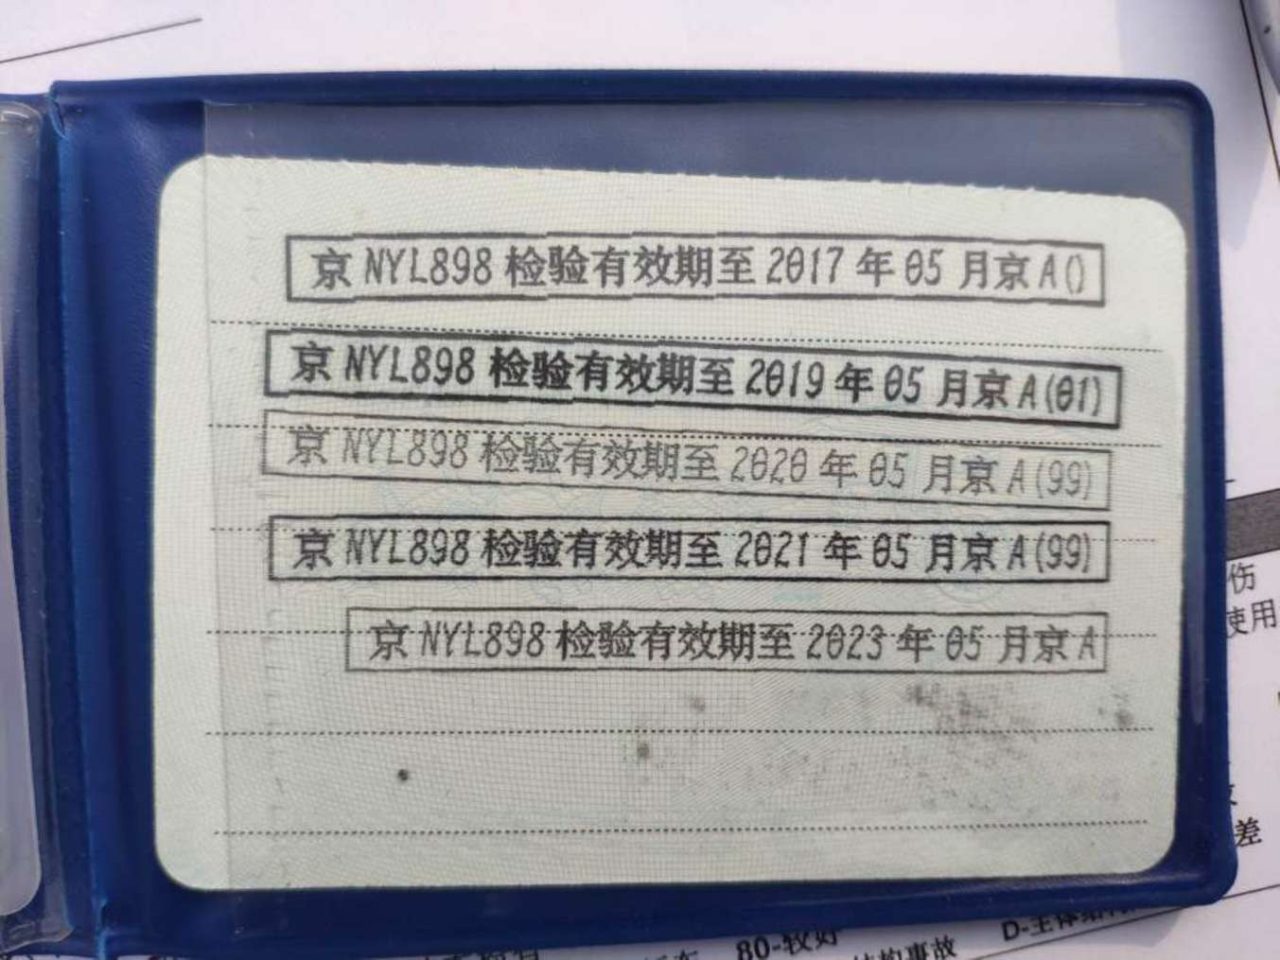 京 NYL898 检验有效期至 2017 年 05 月京 A()
京 NYL898 检验有效期至 2019 年 05 月京 A(01)
京 NYL898 检验有效期至 2020 年 05 月京 A(99)
京 NYL898 检验有效期至 2021 年 05 月京 A(99)
京 NYL898 检验有效期至 2023 年 05 月京 A
伤
使用
差
80-较好
D-主体结构
结构事故